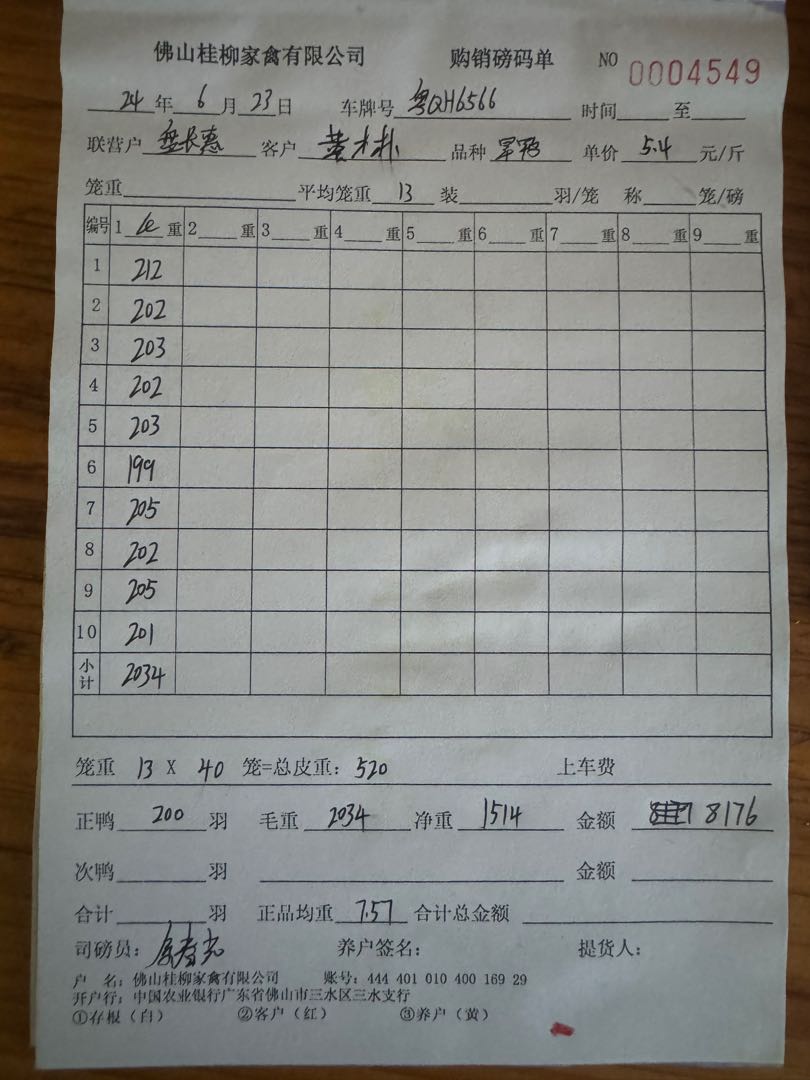 佛山桂柳家禽有限公司 购销磅码单 NO 0004549
24年6月23日 车牌号 粤QH6566 时间 至
联营户 盘长惠 客户 黄才朴 品种 旱鸭 单价 5.4 元/斤
笼重 平均笼重 13 装 羽/笼 称 笼/磅
编号 1 重 2 重 3 重 4 重 5 重 6 重 7 重 8 重 9 重
1 212
2 202
3 203
4 202
5 203
6 199
7 205
8 202
9 205
10 201
小计 2034
笼重 13 X 40 笼=总皮重: 520 上车费
正鸭 200 羽 毛重 2034 净重 1514 金额 8176
次鸭 羽 金额
合计 羽 正品均重 7.57 合计总金额
司磅员: 养户签名: 提货人:
户 名: 佛山桂柳家禽有限公司 账号: 444 401 010 400 169 29
开户行: 中国农业银行广东省佛山市三水区三水支行
①存根(白) ②客户(红) ③养户(黄)